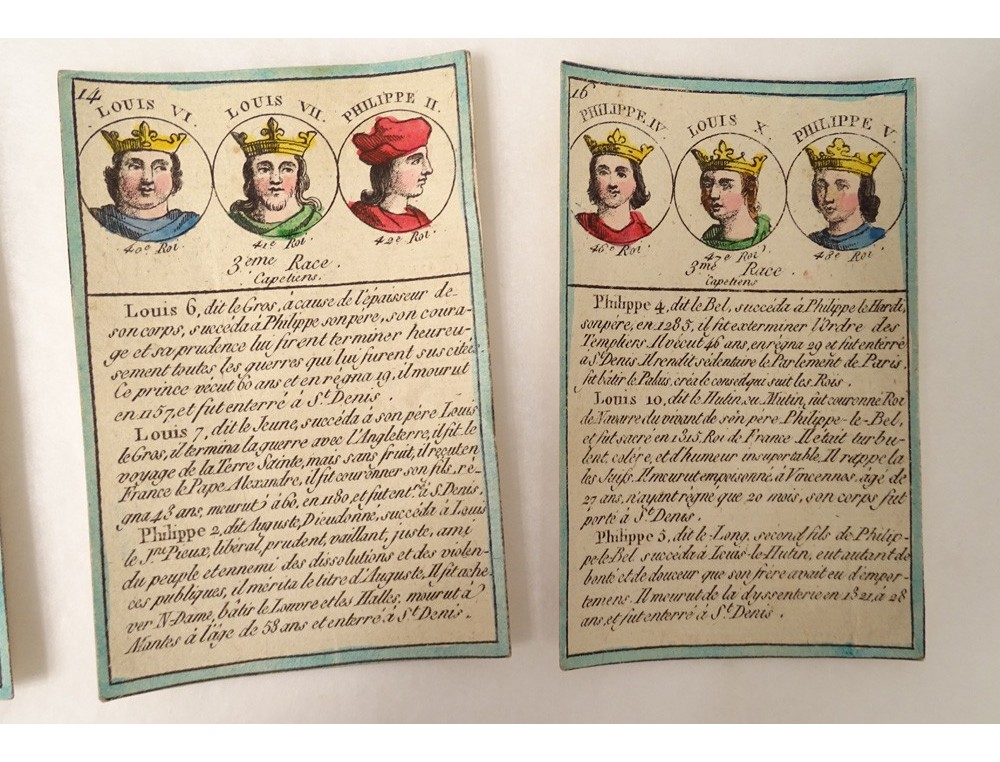 14
LOUIS VI.
LOUIS VII.
PHILIPPE II.
40e Roi.
41e Roi.
42e Roi.
3eme Race.
Capetiens.
Louis 6, dit le Gros, a cause de l'épaisseur de-
son corps, succéda à Philippe son père, son coura-
ge et sa prudence lui firent terminer heureu-
sement toutes les guerres qui lui furent suscitées.
Ce prince vécut 60 ans et en régna 19, il mourut
en 1157, et fut enterré à St Denis.
Louis 7, dit le Jeune, succéda à son père Louis
le Gros, il termina la guerre avec l'Angleterre, il fit le
voyage de la Terre Sainte, mais sans fruit, il reçut en
France le Pape Alexandre, il fit couronner son fils, ré-
gna 43 ans, mourut à 60, en 1180, et fut entré à S. Denis.
Philippe 2, dit Auguste, Dieudonné, succéda à Louis
le Jne Pieux, libéral, prudent, vaillant, juste, ami
du peuple et ennemi des dissolutions et des violen-
ces publiques, il mérita le titre d'Auguste, Il fit ache-
ver N-Dame, bâtir le Louvre et les Halles, mourut à
Mantes à l'âge de 58 ans et enterré à St Denis.
16
PHILIPPE IV
LOUIS X.
PHILIPPE V
46e Roi
47e Roi
48e Roi
3me Race.
Capetiens
Philippe 4, dit le Bel, succéda à Philippe le Hardi,
son père, en 1285, il fit exterminer l'Ordre des
Templiers. Il vécut 46 ans, en régna 29 et fut enterré
à St Denis Il rendit sédentaire le Parlement de Paris,
fit bâtir le Palais, créa le conseil qui suit les Rois.
Louis 10, dit le Hutin, ou Mutin, fut couronné Roi
de Navarre du vivant de son père Philippe-le-Bel,
et fut sacré en 1315, Roi de France Il était turbu-
lent, colère, et d'humeur insuportable, Il rappela
les Juifs. Il mourut empoisonné à Vincennes, âgé de
27 ans, n'ayant régné que 20 mois, son corps fut
porté à St Denis.
Philippe 5, dit le Long, second fils de Philip-
pe le Bel succéda à Louis-le-Hutin, eut autant de
bonté et de douceur que son frère avait eu d'empor-
temens. Il mourut de la dyssenterie en 1321, à 28
ans, et fut enterré à St Denis.